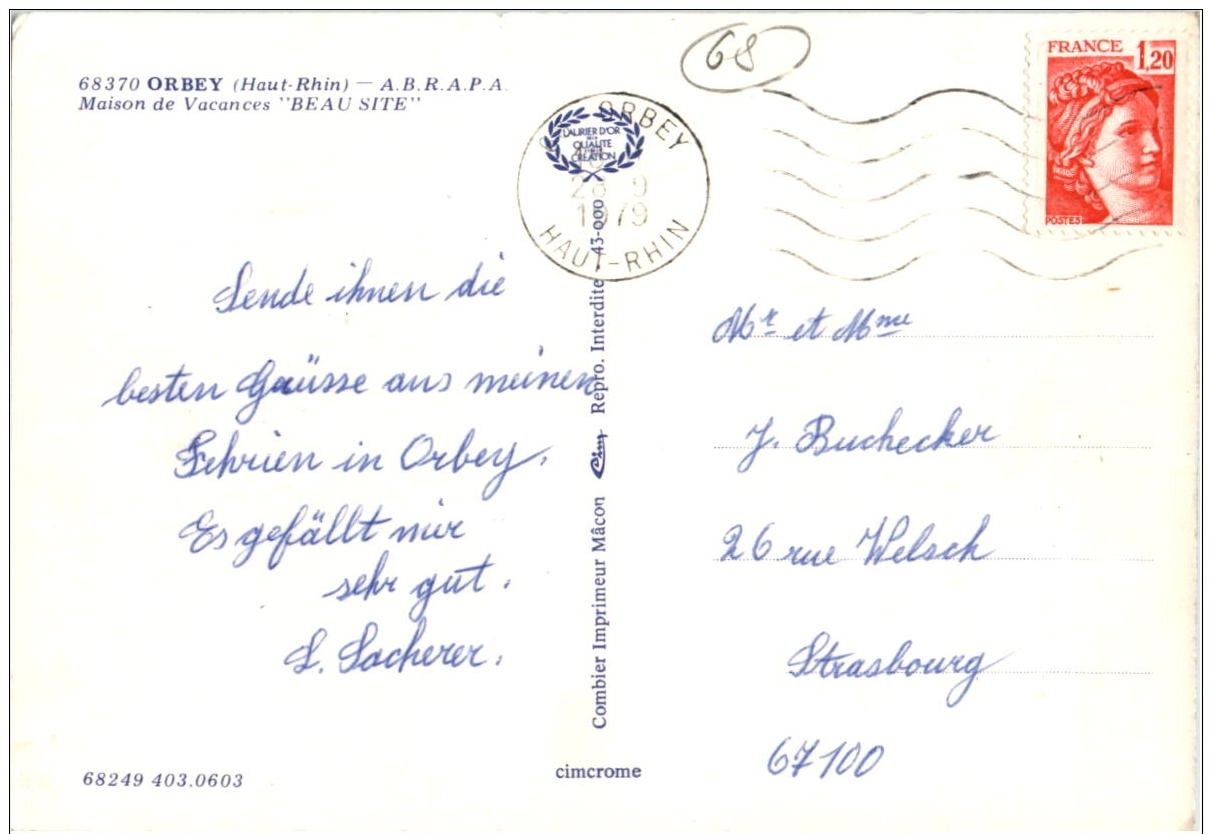 68370 ORBEY (Haut-Rhin) — A.B.R.A.P.A.
Maison de Vacances "BEAU SITE"
68
FRANCE 1,20
POSTES
ORBEY
28 9
1979
HAUT-RHIN
LAURIER D'OR
DE LA
QUALITE
CREATION
Sende ihnen die
besten Grüsse aus meinen
Fehrien in Orbey.
Es gefällt mir
sehr gut.
L. Locherer.
Combier Imprimeur Mâcon Cim Repro. Interdite 43-000
Mr et Mme
J. Buchecker
26 rue Welsch
Strasbourg
67100
68249 403.0603
cimcrome